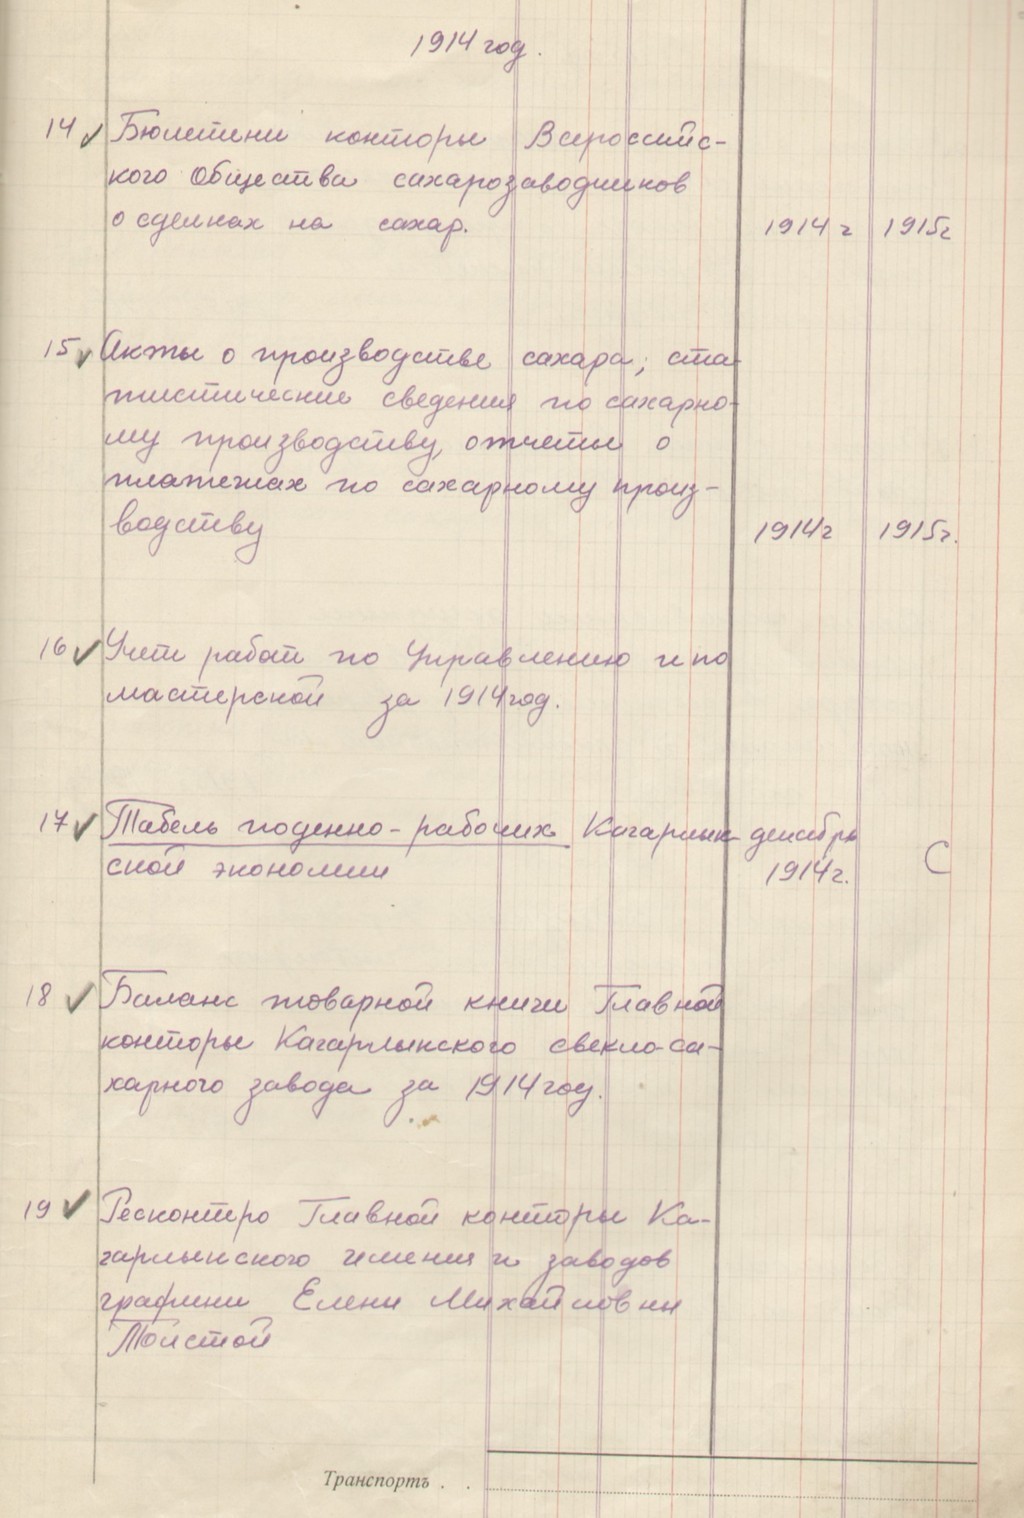 1914 год.
14 Бюлетени конторы Всероссийс-
кого Общества сахарозаводчиков
о сделках на сахар. 1914 г 1915г
15 Акты о производстве сахара; ста-
тистические сведения по сахарно-
му производству, отчеты о
платежах по сахарному произ-
водству 1914г 1915г.
16 Учет работ по Управлению и по
мастерской за 1914 год.
17 Табель поденно-рабочих Кагарлык- декабрь
ской экономии 1914г. С
18 Баланс товарной книги Главной
конторы Кагарлыкского свекло-са-
харного завода за 1914 год.
19 Ресконтро Главной конторы Ка-
гарлыкского имения и заводов
графини Елены Михайловны
Толстой
Транспортъ . .